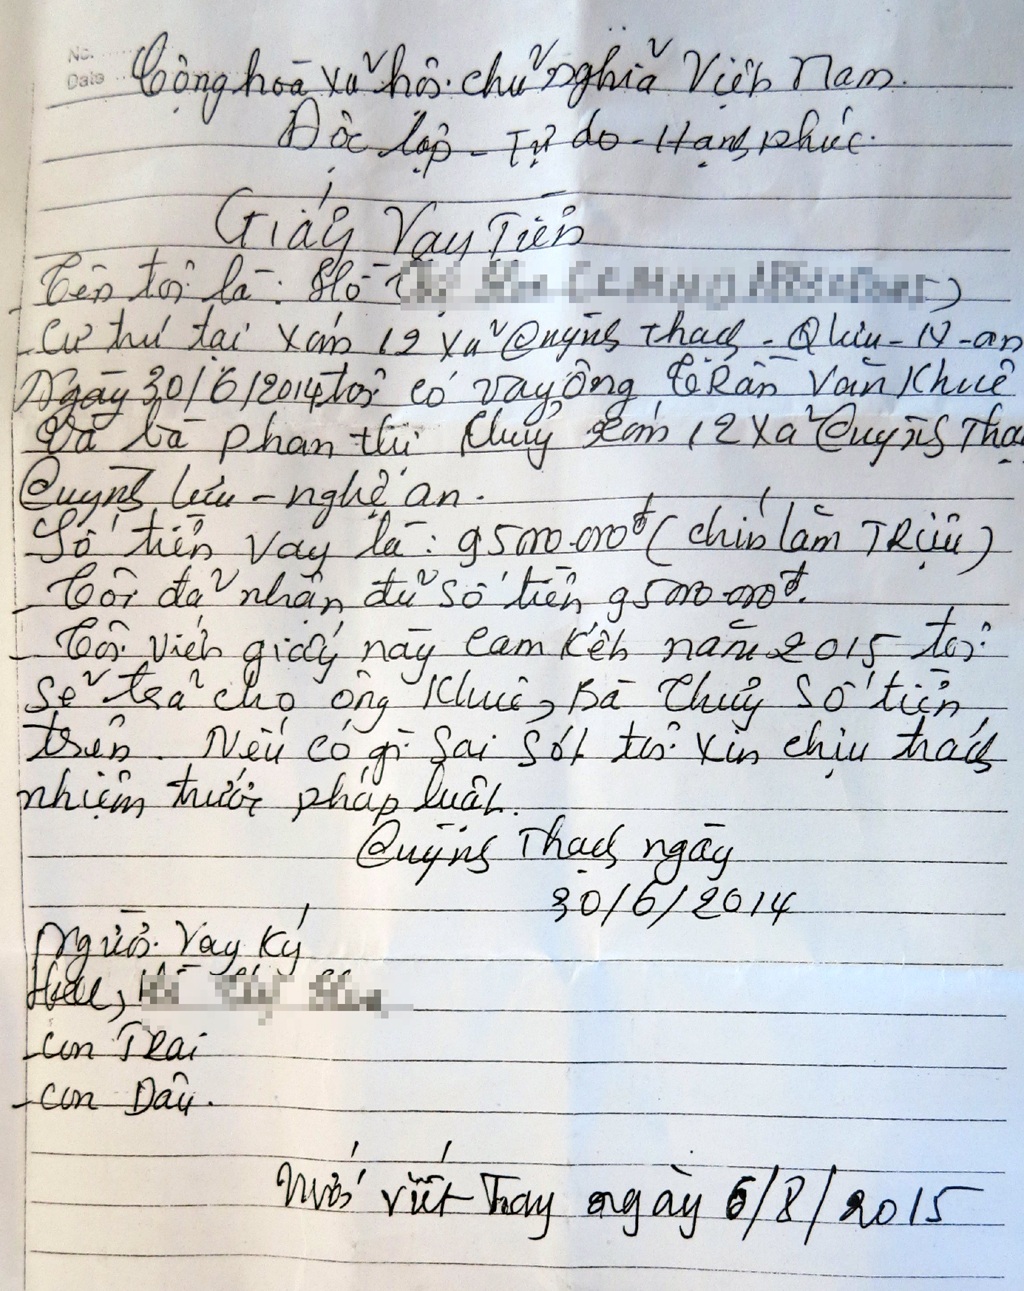 No.
Date
Cộng hoà xã hội chủ nghĩa Việt Nam.
Độc lập - Tự do - Hạnh phúc.
Giấy Vay Tiền
- Tên tôi là: Hồ
- Cư trú tại xóm 12 xã Quỳnh Thạch - Q lưu - N - an
Ngày 30/6/2014 tôi có vay ông Trần Văn Khuê
Và bà phan thị thuỷ xóm 12 xã Quỳnh Thạ
Quỳnh lưu - nghệ an.
Số tiền vay là: 95000.000đ (chín lăm TRiệu)
- Tôi đã nhận đủ số tiền 95000.000đ.
- Tôi viết giấy này cam kết năm 2015 tôi
sẽ trả cho ông Khuê, Bà Thuỷ số tiền
trên. Nếu có gì sai sót tôi xin chịu trách
nhiệm trước pháp luật.
Quỳnh Thạch ngày
30/6/2014
Người vay ký
- con TRai
- con Dâu.
viết Tay ngày 6/8/2015